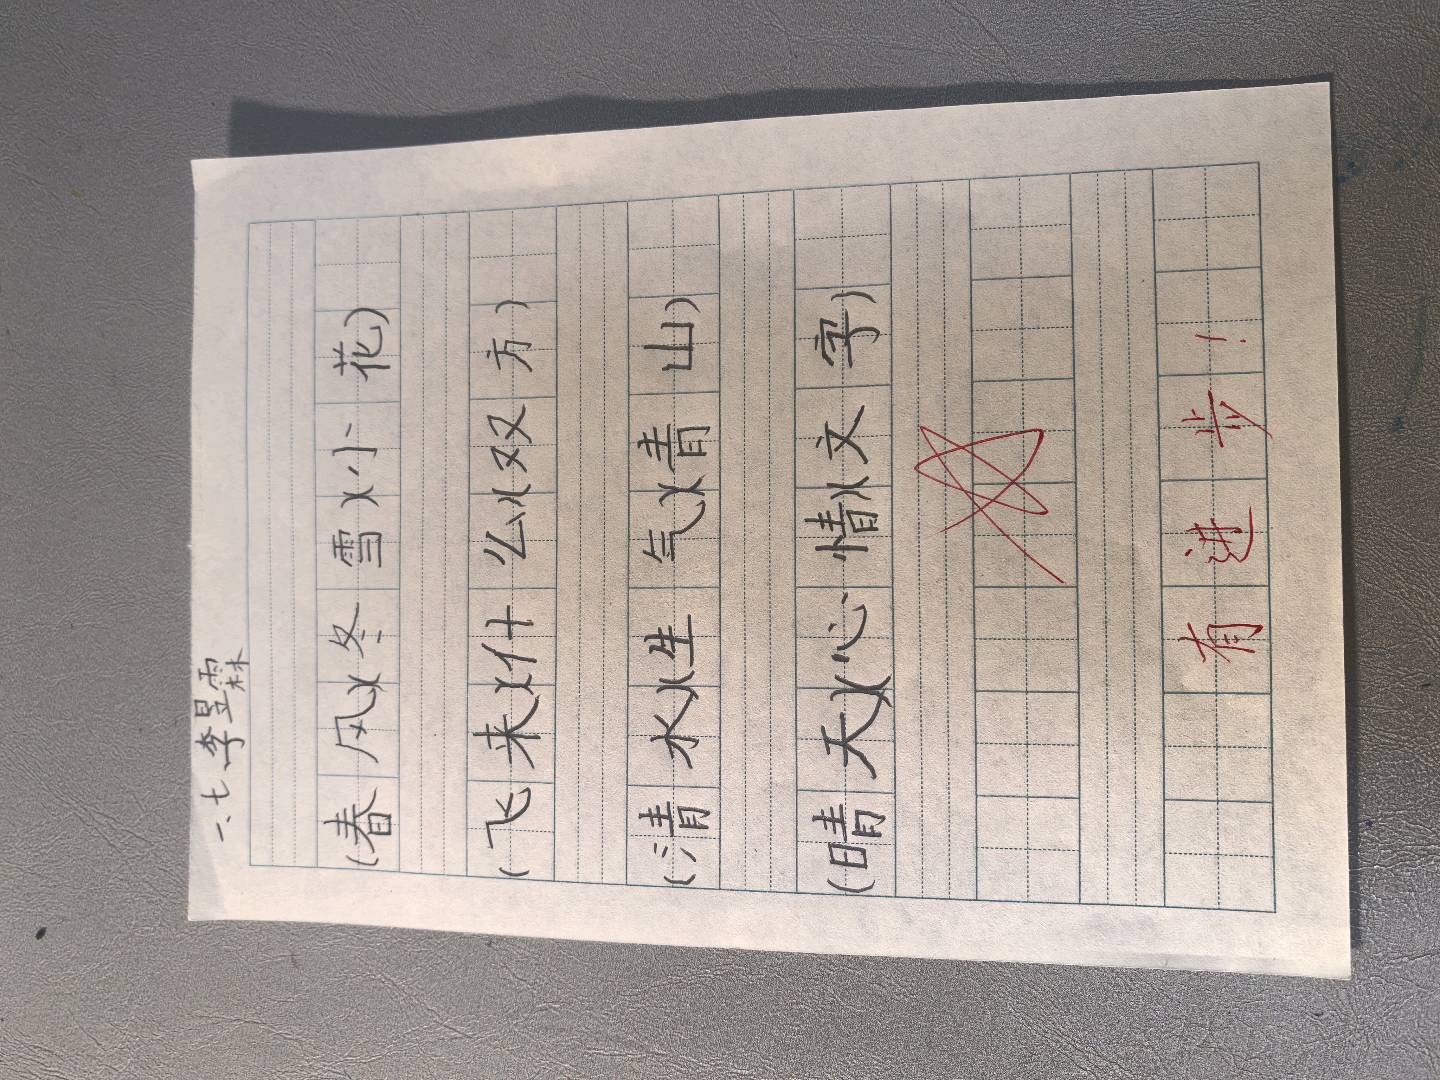 一、七 李昱霖
(春风)(冬雪)(小花)
(飞来)(什么)(双方)
(清水)(生气)(青山)
(晴天)(心情)(文字)
有进步!